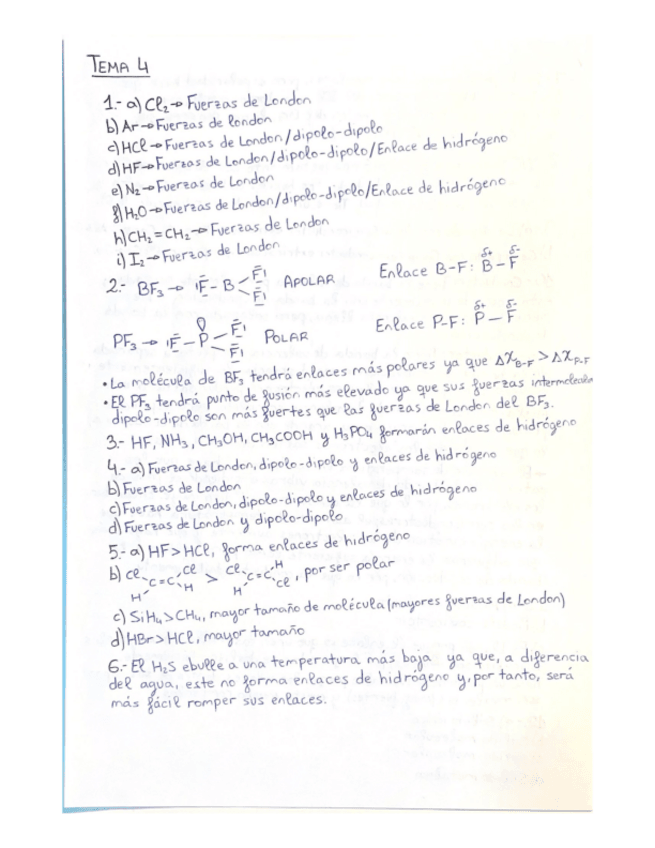 TEMA 4
1.- a) Cl₂ → Fuerzas de London
b) Ar → Fuerzas de london
c) HCl → Fuerzas de London/dipolo-dipolo
d) HF → Fuerzas de London/dipolo-dipolo/Enlace de hidrógeno
e) N₂ → Fuerzas de London
g) H₂O → Fuerzas de London/dipolo-dipolo/Enlace de hidrógeno
h) CH₂=CH₂ → Fuerzas de London
i) I₂ → Fuerzas de London
2.- BF₃ → F-B<F F APOLAR Enlace B-F: δ+ δ- B-F
PF₃ → F-P<F F POLAR Enlace P-F: δ+ δ- P-F
• La molécula de BF₃ tendrá enlaces más polares ya que ΔX_B-F > ΔX_P-F
• El PF₃ tendrá punto de fusión más elevado ya que sus fuerzas
dipolo-dipolo son más fuertes que las fuerzas de London del BF₃.
3.- HF, NH₃, CH₃OH, CH₃COOH y H₃PO₄ formarán enlaces de hidrógeno
4.- a) Fuerzas de London, dipolo-dipolo y enlaces de hidrógeno
b) Fuerzas de London
c) Fuerzas de London, dipolo-dipolo y enlaces de hidrógeno
d) Fuerzas de London y dipolo-dipolo
5.- a) HF > HCl, forma enlaces de hidrógeno
b) Cl H C=C Cl H > Cl H C=C H Cl, por ser polar
c) SiH₄ > CH₄, mayor tamaño de molécula (mayores fuerzas de London)
d) HBr > HCl, mayor tamaño
6.- El H₂S ebulle a una temperatura más baja ya que, a diferencia
del agua, este no forma enlaces de hidrógeno y, por tanto, será
más fácil romper sus enlaces.